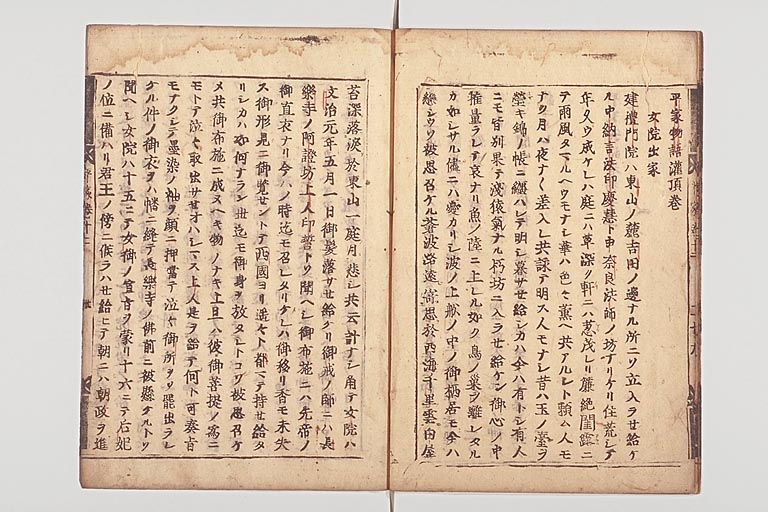 平家物語灌頂巻
女院出家
建禮門院ハ東山ノ麓吉田ノ邊ナル所ニソ立入ラセ給ケ
ル中納言法印慶慧ト申奈良法師ノ坊ナリケリ住荒シテ
年久ウ成ケレハ庭ニハ草深ク軒ニハ荵茂レリ簾絶閨露ニ
テ雨風タマルヘウモナシ華ハ色々薫ヘ共アルシト頼ム人モ
ナク月ハ夜ナ〳〵差入レ共詠テ明ス人モナシ昔ハ玉ノ臺ヲ
瑩キ錦ノ帳ニ纏ハレテ明シ暮サセ給シカハ今ハ有トシ有人
ニモ皆別果テ淺猿氣ナル朽坊ニ入ラセ給ケン御心ノ中
推量ラレテ哀ナリ魚ノ陸ニ上レル如ク鳥ノ巣ヲ離レタル
カ如シサル儘ニハ憂カリシ波ノ上船ノ中ノ御栖居モ今ハ
戀シウソ被思召ケル蒼波路遠寄思於西海千里雲白屋
苔深落涙於東山一庭月悲シ共云計ナシ角テ女院ハ
文治元年五月一日御髪落サセ給ケリ御戒ノ師ニハ長
樂寺ノ阿證坊上人印誓トソ聞ヘシ御布施ニハ先帝ノ
御直衣ナリ今ハノ時迄モ召レタリケレハ御移リ香モ未失
ス御形見ニ御覧セントテ西國ヨリ遥々ト都ヘテ持セ給タ
リシカハ如何ナラン世迄モ御身ヲ放タレトコソ被思召ケ
メ共御布施ニ成スヘキ物ノナキ上且ハ彼御菩提ノ爲ニ
モトテ泣々取出サセオハシマス上人是ヲ給テ何ト可奏旨
モナクシテ墨染ノ袖ヲ顔ニ押當テ泣々御所ヲソ罷出ラレ
ケル件ノ御衣ヲハ幡ニ縫テ長樂寺ノ佛前ニ被懸ケルトソ
聞ヘシ女院ハ十五ニテ女御ノ宣旨ヲ蒙リ十六ニテ后妃
ノ位ニ備ハリ君王ノ傍ニ候ラハセ給ヒテ朝ニハ朝政ヲ進